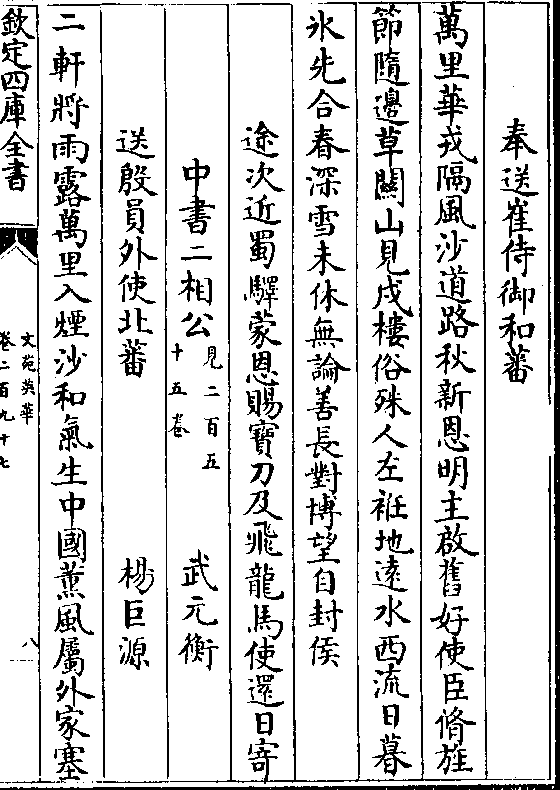 奉送崔侍御和蕃
萬里華戎隔風沙道路秋新恩明主啟舊好使臣脩旌
節隨邊草關山見戍樓俗殊人左袵地遠水西流日暮
氷先合春深雪未休無論善長對博望自封侯
途次近蜀驛蒙恩賜寶刀及飛龍馬使還日寄
中書二相公 見二百五十五卷 武元衡
送殷員外使北蕃 楊巨源
二軒將雨露萬里入煙沙和氣生中國薰風屬外家塞
欽定四庫全書
文苑英華
卷二百九十七
八